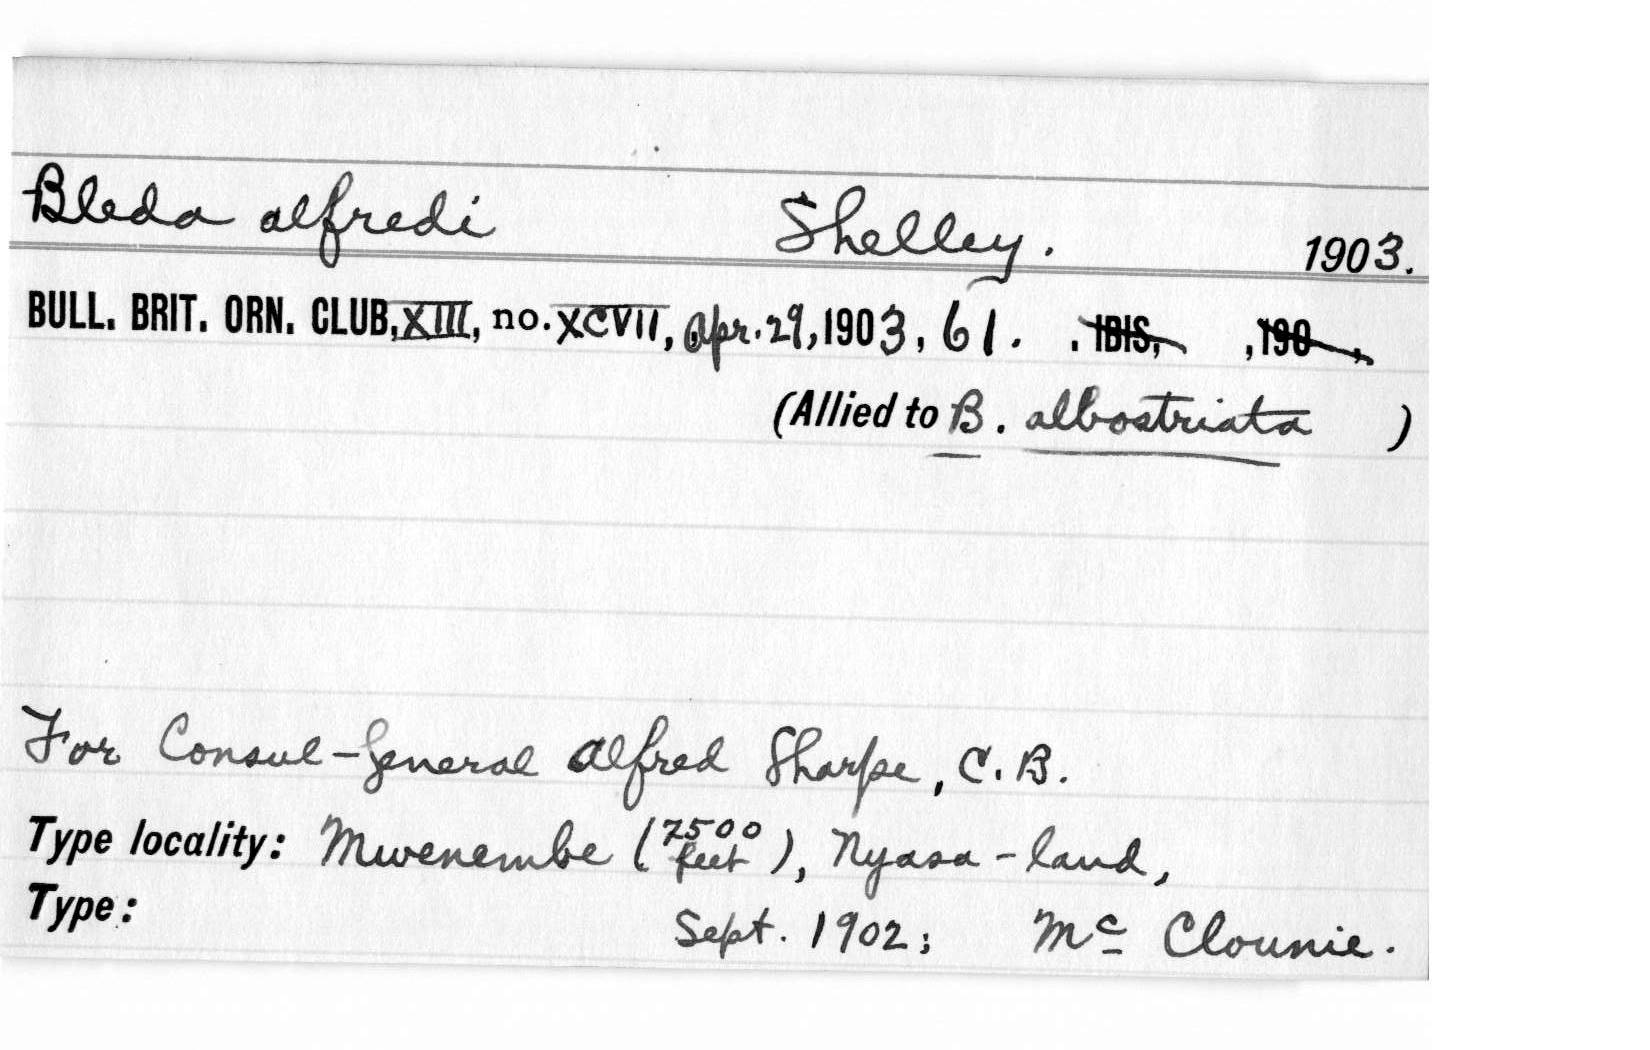 Bleda alfredi Shelley. 1903.
BULL. BRIT. ORN. CLUB, XIII, no. XCVII, Apr. 29, 1903, 61. . IBIS, , 190 ,
(Allied to B. albostriata )
For Consul-General Alfred Sharpe, C.B.
Type locality: Mwenembe (7500 feet), Nyasa-land,
Type: Sept. 1902; Mc Clounie.